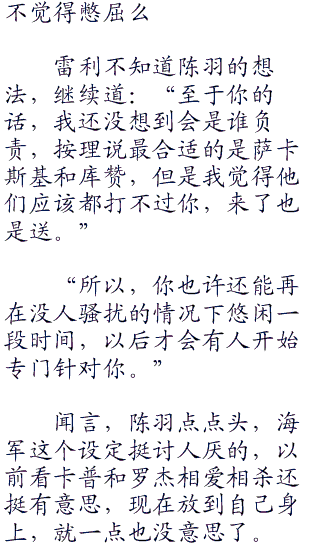 不觉得憋屈么
雷利不知道陈羽的想
法，继续道：“至于你的
话，我还没想到会是谁负
责，按理说最合适的是萨卡
斯基和库赞，但是我觉得他
们应该都打不过你，来了也
是送。”
“所以，你也许还能再
在没人骚扰的情况下悠闲一
段时间，以后才会有人开始
专门针对你。”
闻言，陈羽点点头，海
军这个设定挺讨人厌的，以
前看卡普和罗杰相爱相杀还
挺有意思，现在放到自己身
上，就一点也没意思了。